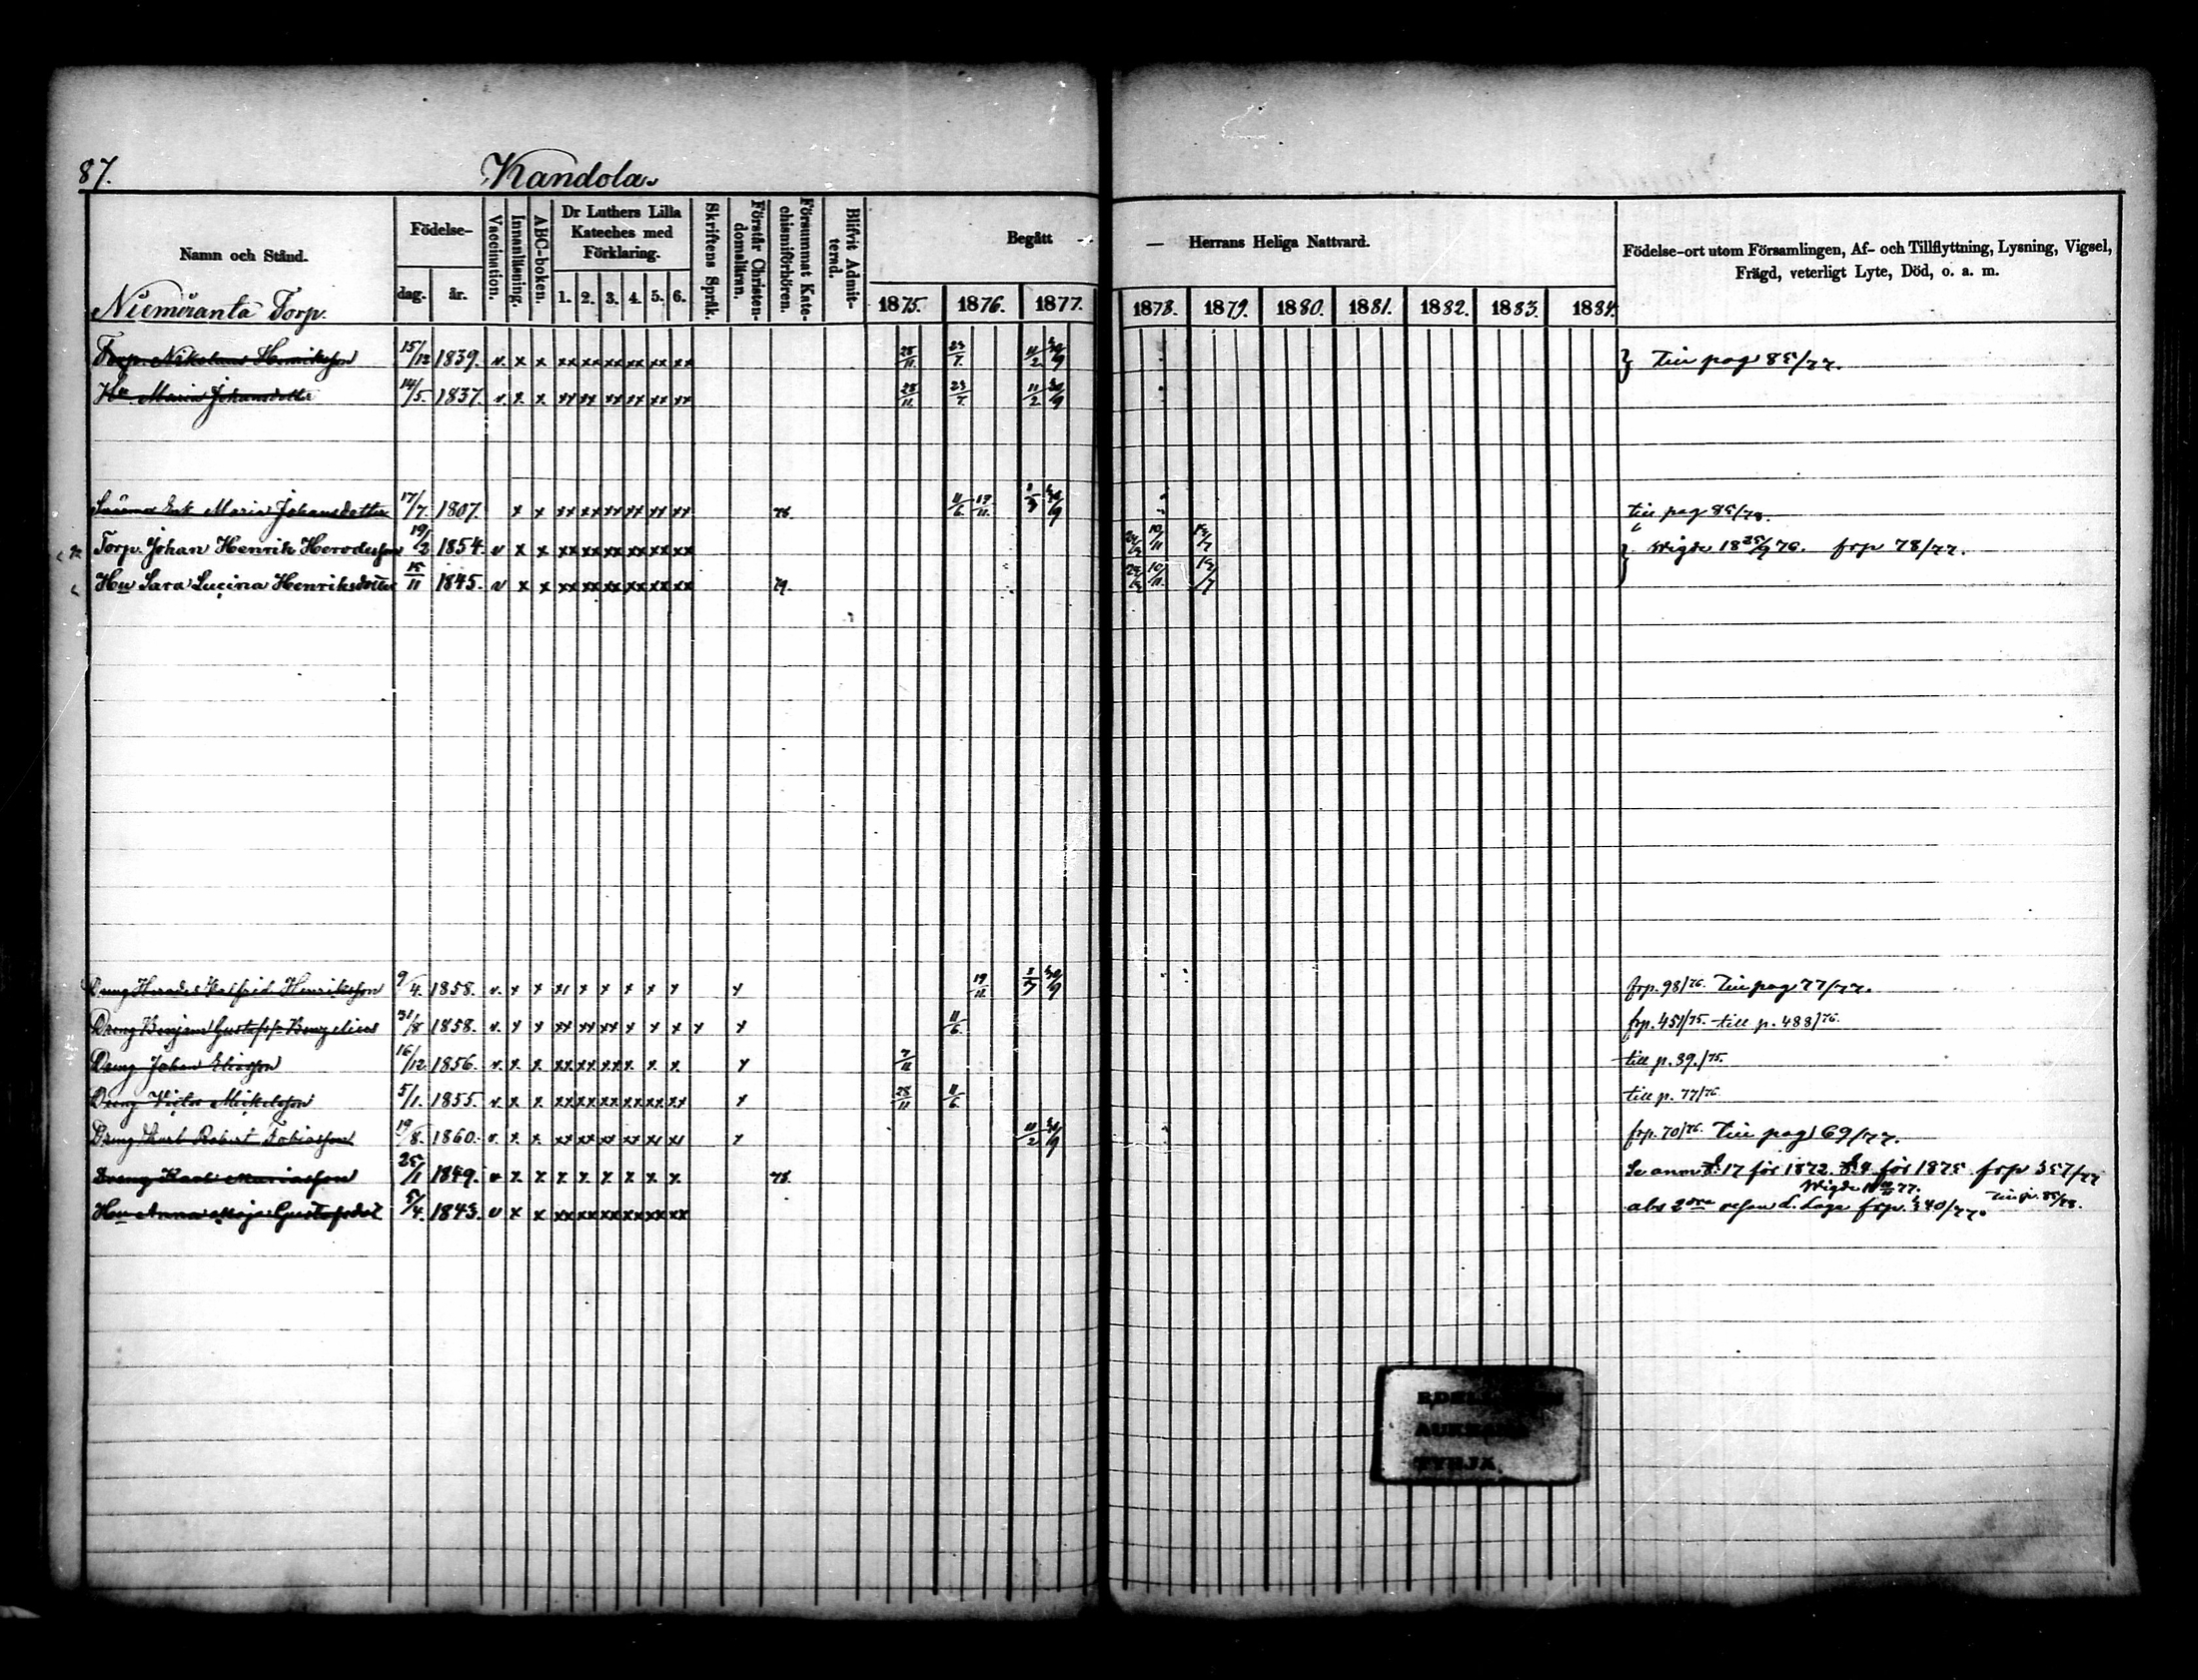 87. Kandola.
Namn och Stånd.
Födelse-
dag. år.
Vaccination.
Innanläsning.
ABC-boken.
Dr Luthers Lilla
Kateches med
Förklaring.
1. 2. 3. 4. 5. 6.
Skriftens Språk.
Förstår Christen-
domsläran.
Försummat Kate-
chismiförhören.
Blifvit Admit-
terad.
Begått — Herrans Heliga Nattvard.
1875. 1876. 1877. 1878. 1879. 1880. 1881. 1882. 1883. 1884.
Födelse-ort utom Församlingen, Af- och Tillflyttning, Lysning, Vigsel,
Frägd, veterligt Lyte, Död, o. a. m.
Niemiranta Torp.
Torp. Nikolaus Henriksson 15/12 1839. v. x x xx xx xx xx xx xx 28/11 23/7. 11/2 30/9 } till pag 85/77.
Hu Maria Johansdotter 14/5. 1837. v. x x xx xx xx xx xx xx 28/11. 23/7. 11/2 30/9
Enk. Maria Johansdotter 17/7. 1807. x x xx xx xx xx xx xx 78. 11/6 19/11. 30/9 till pag 85/78.
Torp. Johan Henrik Herodesson 19/2 1854. v x x xx xx xx xx xx xx 10/11 } Wigde 18 25/9 76. frp 78/77.
Hu Sara Lucina Henriksdotter 15/11 1845. v x x xx xx xx xx xx xx 79. 10/11.
Dreng Herodes Walfrid Henriksson 9/4. 1858. v. x x xx x x x x x x 19/11. 30/9 frp. 98/76. till pag 77/77.
Dreng Benjam Gustafss. Bengelius 31/8 1858. v. x x xx xx xx x x x x x 11/6. frp. 451/75. till p. 488/76.
Dreng Johan Eliasson 16/12 1856. v. x x xx xx xx x x x x 7/11 till p. 39./75.
Dreng Victor Mickelsson 5/1. 1855. v. x x xx xx xx xx xx xx x 28/11 11/6. till p. 77/76
Dreng Karl Robert Tobiasson 19/8. 1860. v. x x xx xx xx xx xx xx x 11/2 30/9 frp. 70/76. till pag 69/77.
Dreng Karl Mariasson 25/1 1849. v x x x x x x x x 78. Se anm §. 17 för 1872. §. 4 för 1875 frp 357/77
Wigde
Hu Anna Maja Gustafsdot 5/4. 1843. v x x xx xx xx xx xx xx abs 2dra resan L. Läge frp. 340/77. till p. 85/78.